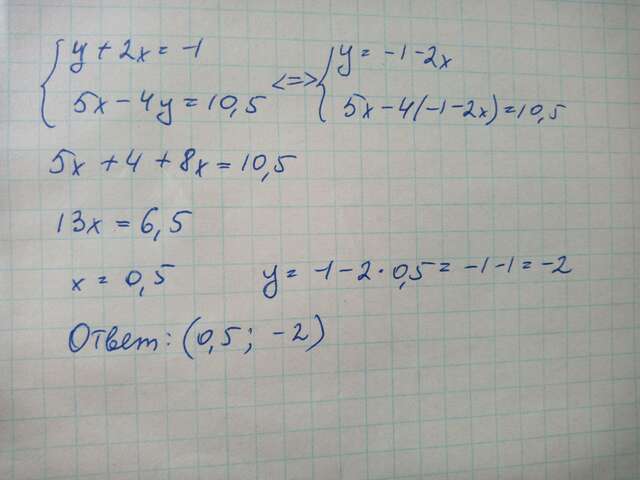 { y + 2x = -1 <=> { y = -1 - 2x
5x - 4y = 10,5 5x - 4(-1-2x) = 10,5
5x + 4 + 8x = 10,5
13x = 6,5
x = 0,5 y = -1 - 2 · 0,5 = -1 - 1 = -2
Ответ: (0,5; -2)